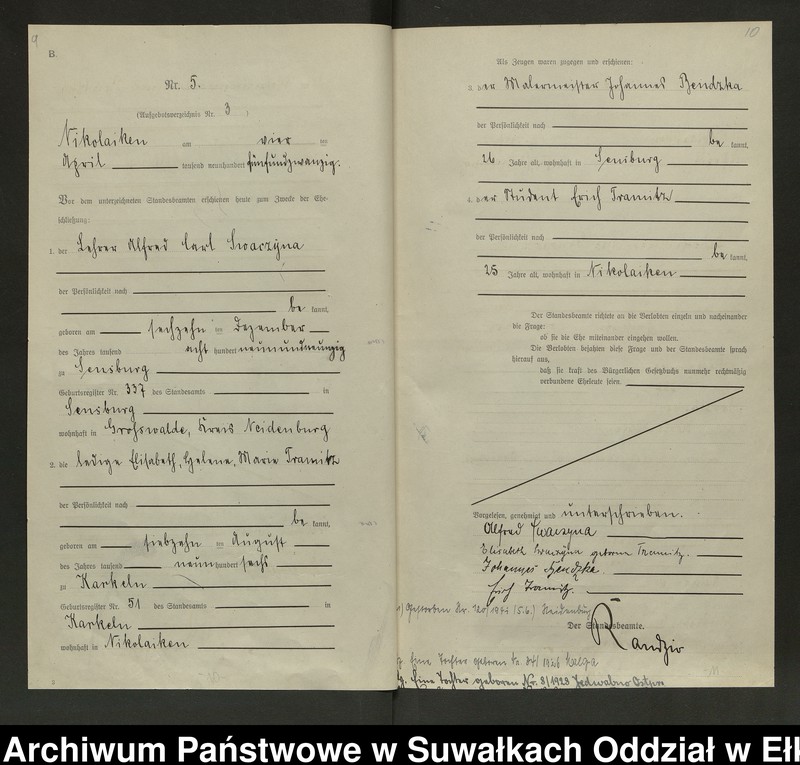 9
B.
Nr. 5.
(Aufgebotsverzeichnis Nr. 3 )
Nikolaiken am vier ten
April tausend neunhundert fünfundzwanzig.
Vor dem unterzeichneten Standesbeamten erschienen heute zum Zwecke der Ehe-
schließung:
1. der Lehrer Alfred Carl Swaczyna
der Persönlichkeit nach
be kannt,
geboren am sechzehn ten Dezember
des Jahres tausend acht hundert neunundneunzig
zu Sensburg
Geburtsregister Nr. 337 des Standesamts in
Sensburg
wohnhaft in Großwalde, Kreis Neidenburg
2. die ledige Elisabeth, Helene, Marie Tramitz
der Persönlichkeit nach
be kannt,
geboren am siebzehn ten August
des Jahres tausend neun hundert sechs
zu Karkeln
Geburtsregister Nr. 51 des Standesamts in
Karkeln
wohnhaft in Nikolaiken
10
Als Zeugen waren zugegen und erschienen:
3. der Malermeister Johannes Bendzka
der Persönlichkeit nach
be kannt,
26 Jahre alt, wohnhaft in Sensburg
4. der Student Erich Tramitz
der Persönlichkeit nach
be kannt,
25 Jahre alt, wohnhaft in Nikolaiken
Der Standesbeamte richtete an die Verlobten einzeln und nacheinander
die Frage:
ob sie die Ehe miteinander eingehen wollen.
Die Verlobten bejahten diese Frage und der Standesbeamte sprach
hierauf aus,
daß sie kraft des Bürgerlichen Gesetzbuchs nunmehr rechtmäßig
verbundene Eheleute seien.
Vorgelesen, genehmigt und unterschrieben.
Alfred Swaczyna
Elisabeth Swaczyna geborene Tramitz.
Johannes Bendzka.
Erich Tramitz.
Gestorben Nr. Neidenburg
Der Standesbeamte.
Randzio
Eine Tochter geboren Nr. 1926
Eine Tochter geboren Nr. 8/1928 Jedwabno Ostpr.
Archiwum Państwowe w Suwałkach Oddział w Ełk